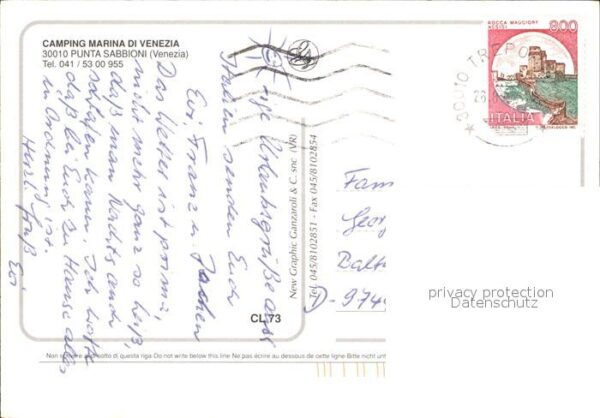 CAMPING MARINA DI VENEZIA
30010 PUNTA SABBIONI (Venezia)
Tel. 041 / 53 00 955
Urlaubsgrüße aus
Italien senden Euch
Evi, Franz u. Jochen
Das Wetter ist prima,
nicht mehr ganz so heiß,
daß man Nachts auch
schlafen kann. Ich hoffe
daß bei Euch zu Hause alles
in Ordnung ist.
Herzl. Gruß
Evi
New Graphic Ganzaroli & C. snc (VR)
Tel. 045/8102851 - Fax 045/8102854
CL 73
ROCCA MAGGIORE
ASSISI
800
ITALIA
30010 TREPO
Fam
Geor
Balt
D-974
privacy protection
Datenschutz
Non scrivere al disotto di questa riga Do not write below this line Ne pas écrire au dessous de cette ligne Bitte nicht unt